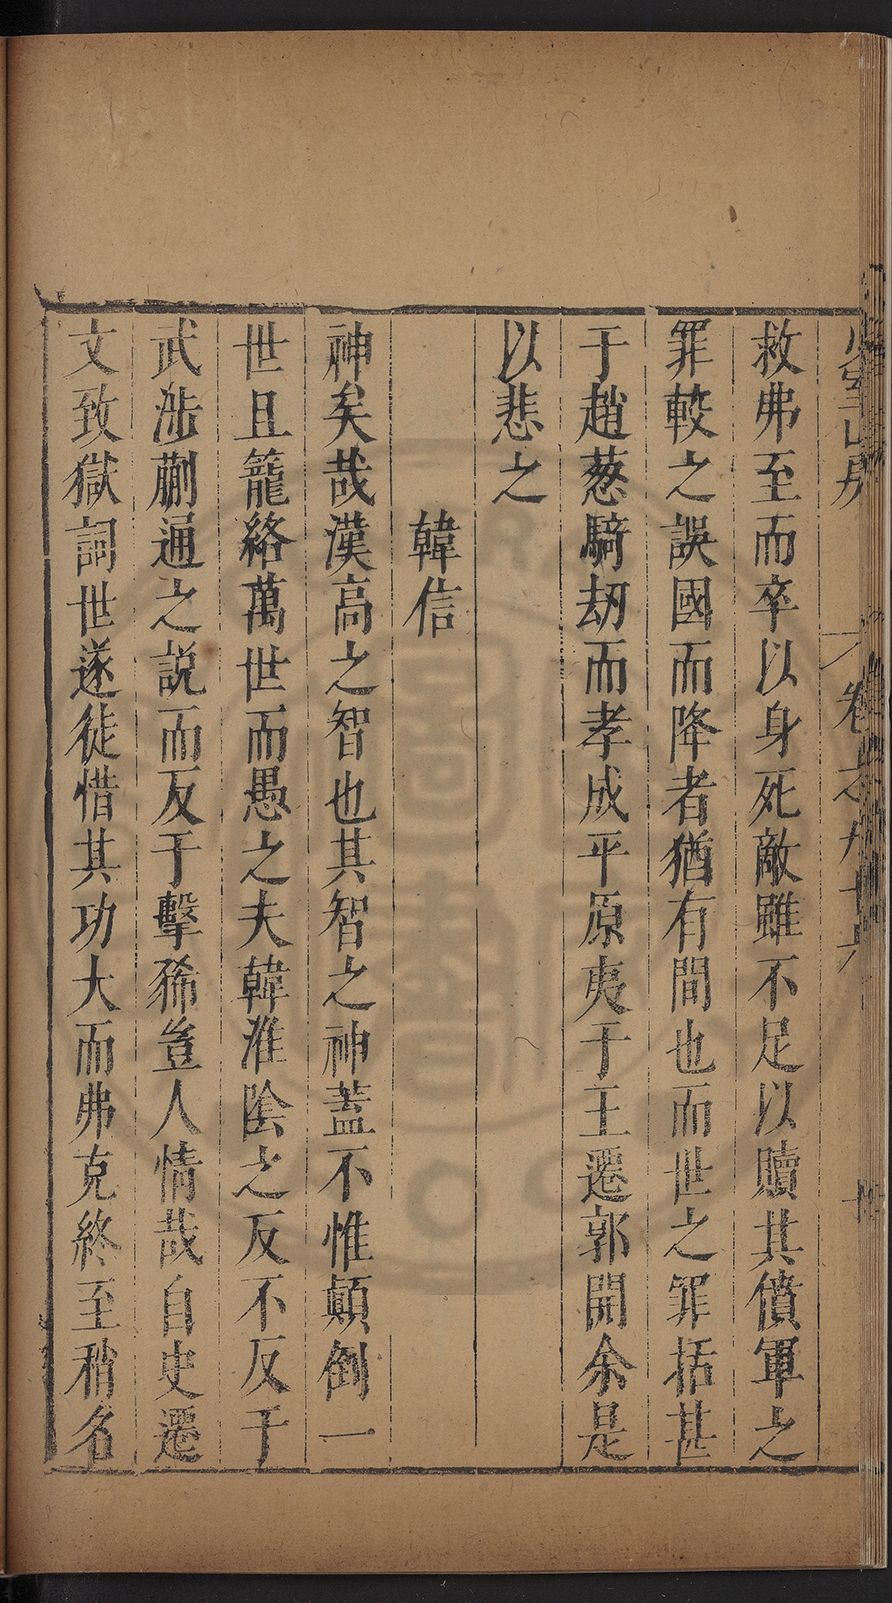 少室山房　卷之九十六　十
救弗至而卒以身死敵雖不足以贖其僨軍之
罪較之誤國而降者猶有間也而世之罪括甚
于趙葱騎劫而孝成平原夷于王遷郭開余是
以悲之
韓信
神矣哉漢高之智也其智之神蓋不惟顛倒一
世且籠絡萬世而愚之夫韓淮陰之反不反于
武涉蒯通之說而反于擊豨豈人情哉自史遷
文致獄詞世遂徒惜其功大而弗克終至稍名